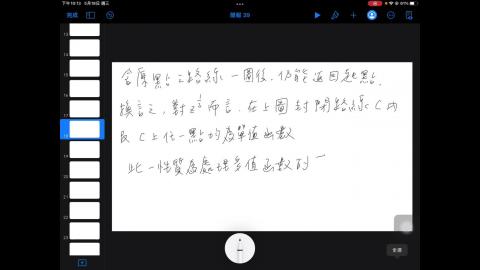 下午10:13 5月18日 週三
61%
完成
簡報 39
13
14
15
16
17
18
19
20
21
22
23
含原點之路線一圈後,仍能返回起點.
換言之,對z^{1/2}而言,在上圖封閉路線C內
及C上任一點均為單值函数
此一性質為處理多值函数的一
全選